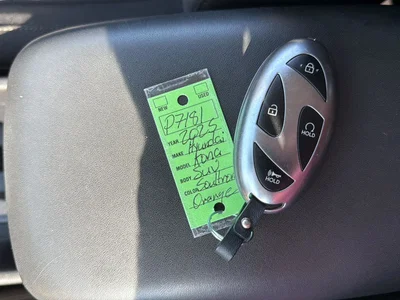 NEW USED
P7181
YEAR 2025
MAKE Hyundai
MODEL Kona
BODY SUV
COLOR Soultronic
Orange
HOLD
HOLD